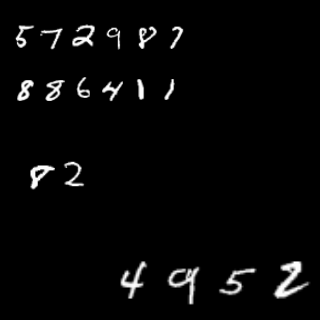 572987
886411
82
4952